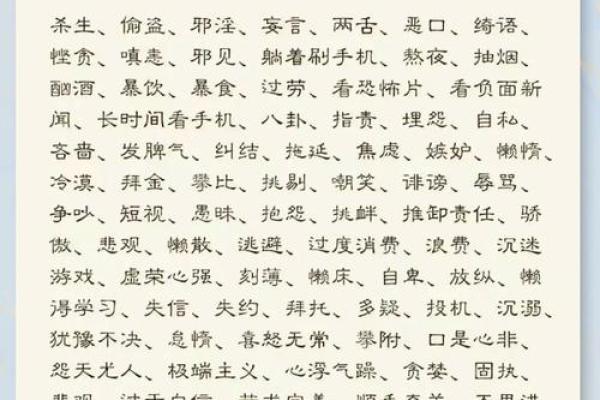 杀生、偷盗、邪淫、妄言、两舌、恶口、绮语、
悭贪、嗔恚、邪见、躺着刷手机、熬夜、抽烟、
酗酒、暴饮、暴食、过劳、看恐怖片、看负面新
闻、长时间看手机、八卦、指责、埋怨、自私、
吝啬、发脾气、纠结、拖延、焦虑、嫉妒、懒惰、
冷漠、拜金、攀比、挑剔、嘲笑、诽谤、辱骂、
争吵、短视、愚昧、抱怨、挑衅、推卸责任、骄
傲、悲观、懒散、逃避、过度消费、浪费、沉迷
游戏、虚荣心强、刻薄、懒床、自卑、放纵、懒
得学习、失信、失约、拜托、多疑、投机、沉溺、
犹豫不决、怠惰、喜怒无常、攀附、口是心非、
怨天尤人、极端主义、心浮气躁、贪婪、固执、
悲观、过于自信、